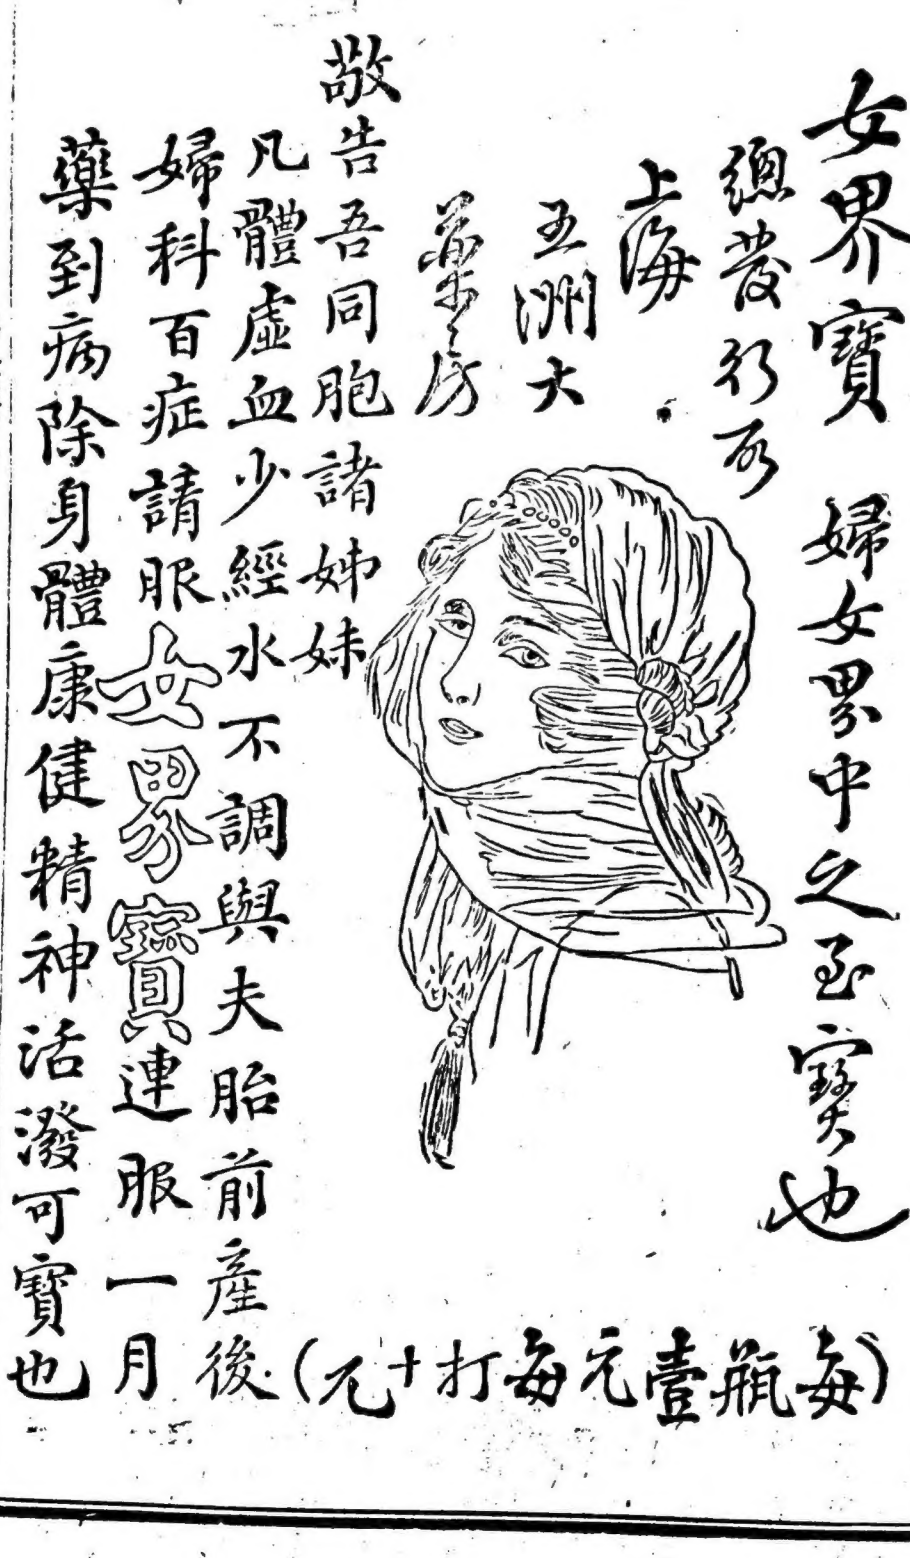 女界寶 婦女界中之至寶也
總發行所
上海
五洲大
藥房
(每瓶壹元每打十元)
敬告吾同胞諸姊妹
凡體虛血少經水不調與夫胎前產後
婦科百症請服女界寶連服一月
藥到病除身體康健精神活潑可寶也